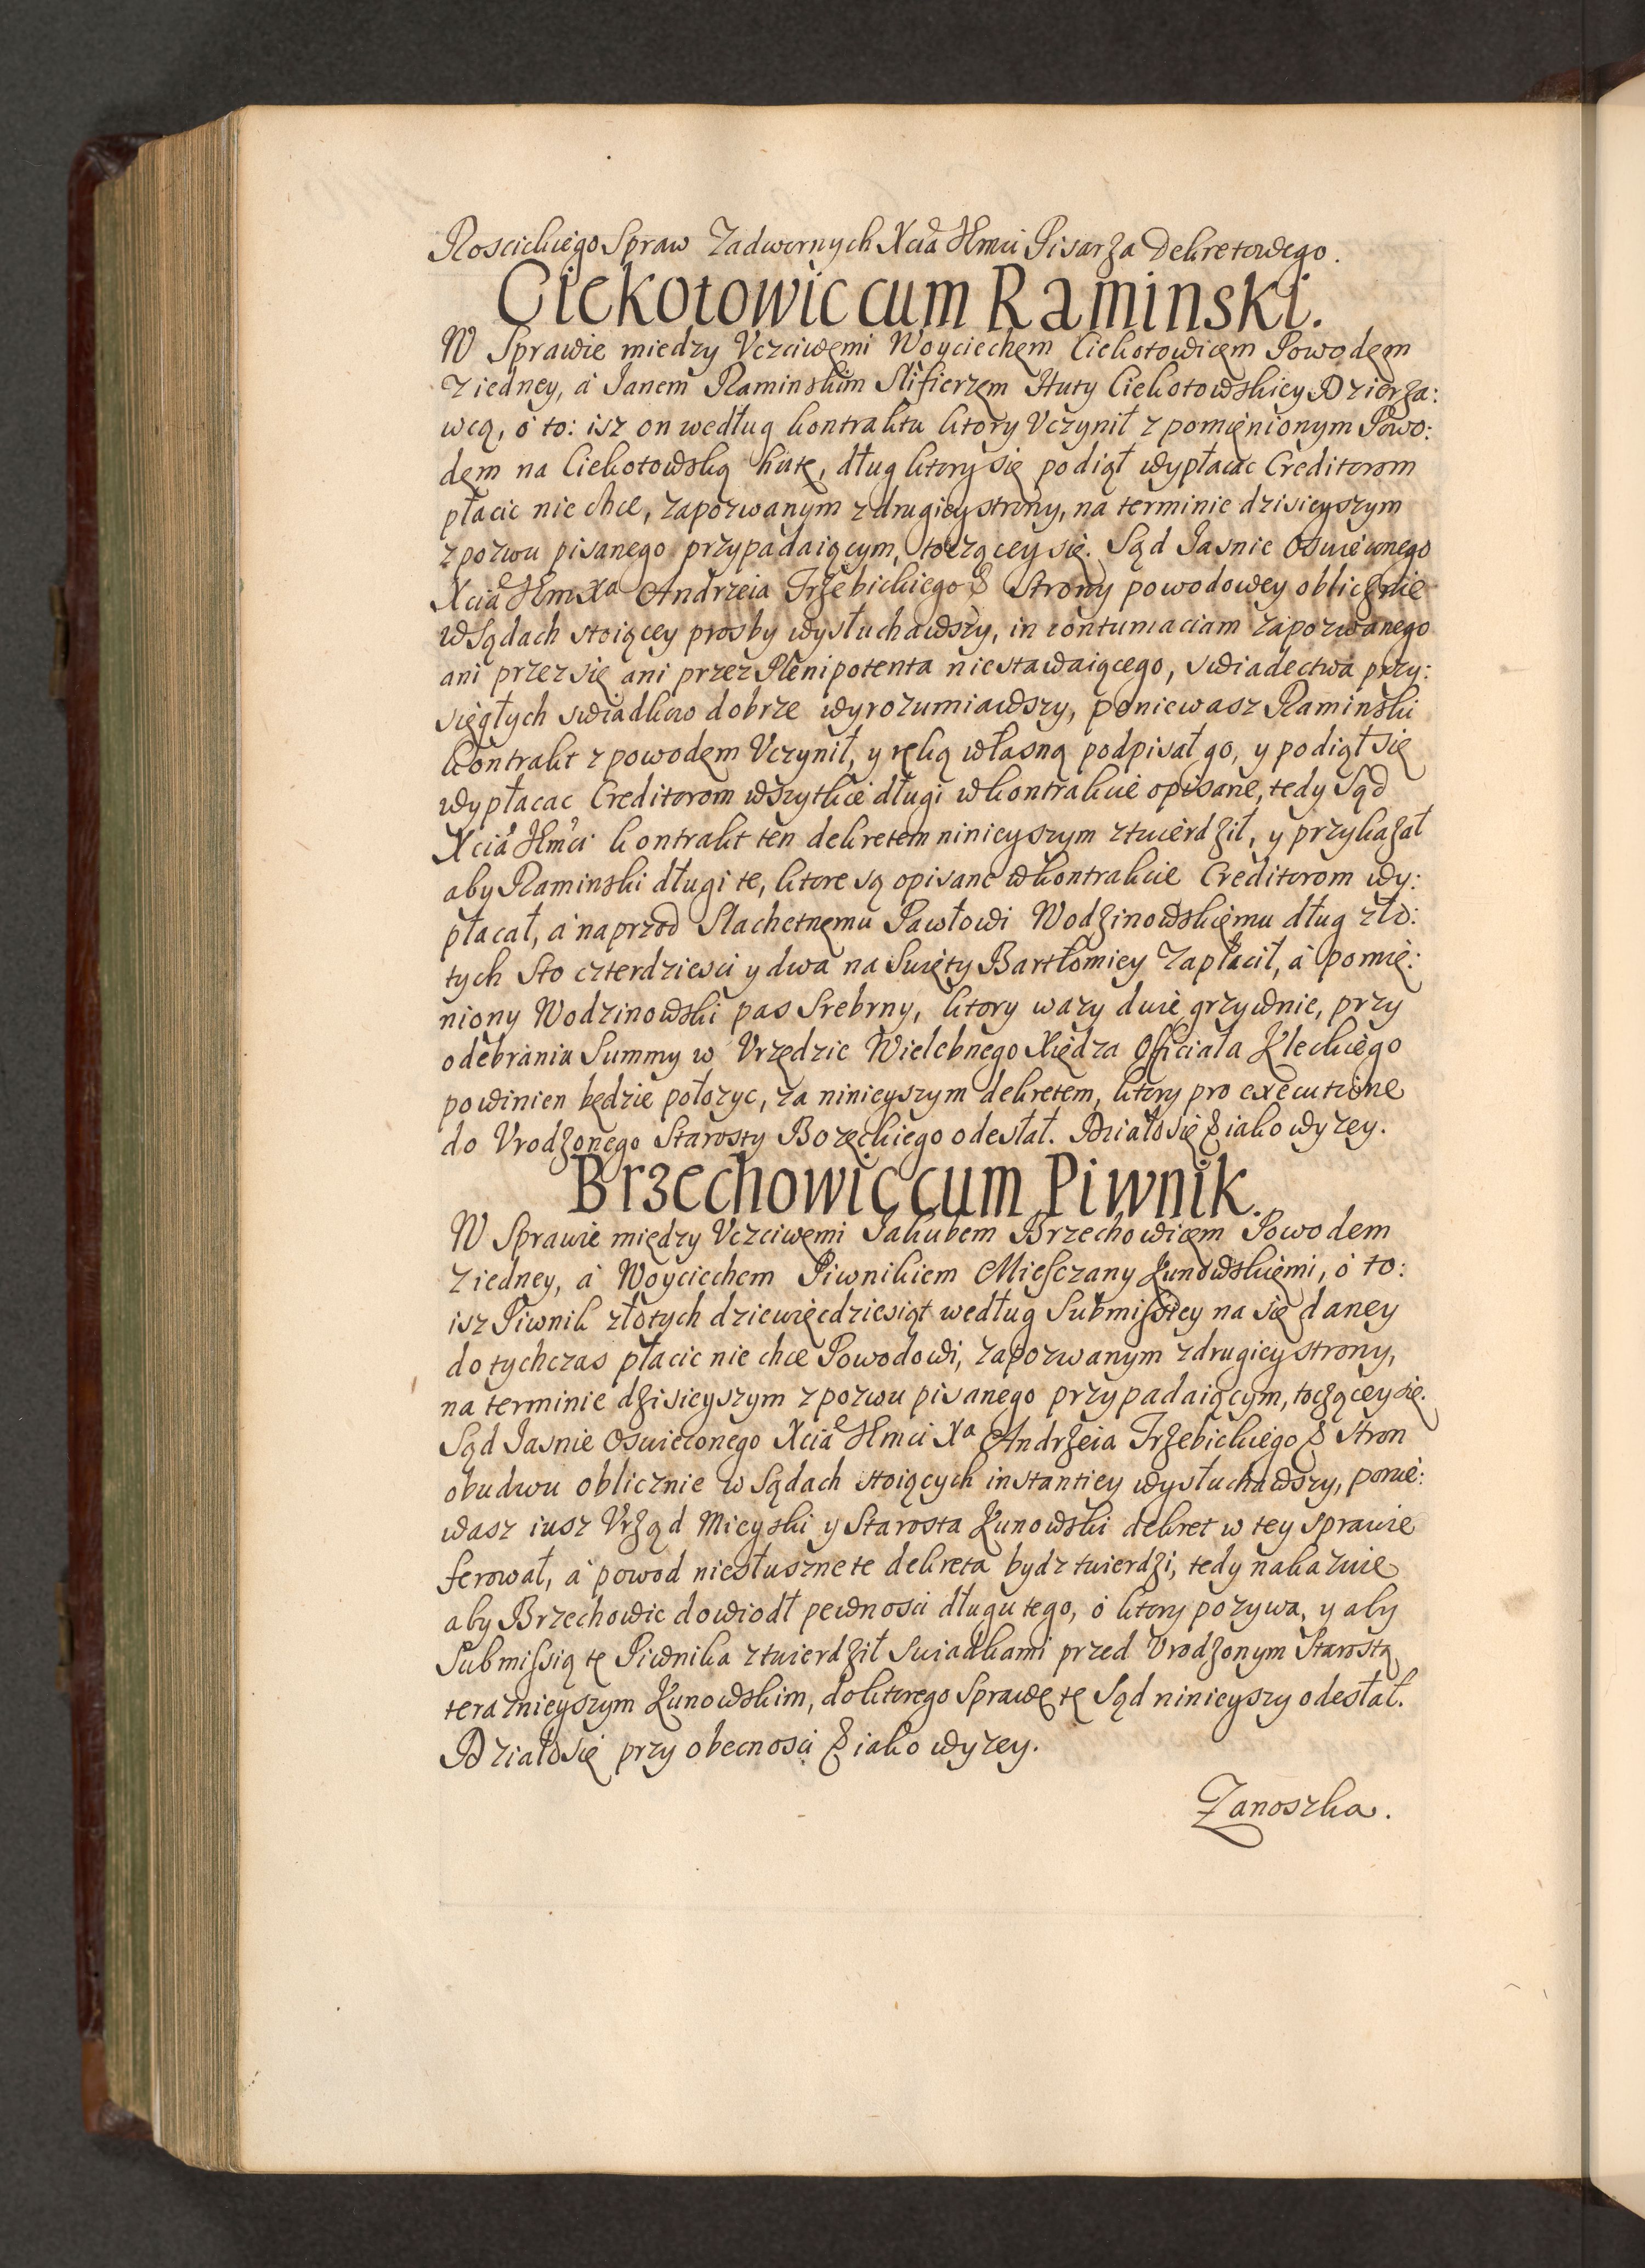 Roscickiego Spraw Zadwornych Xcia Jmci Pisarza Dekretowego.
Ciekotowic cum Raminski.
W Sprawie miedzy Vczciwemi Woyciechem Ciekotowicem Powodem
z iedney, á Ianem Raminskim Slifierzem Huty Ciekotowskiey Dzierza:
wcą, ó to: isz on według kontraktu ktory Vczynił z pomięnionym Powo:
dem na Ciekotowską hutę, dług ktory się podiął wypłacac Creditorom
płacic nie chce, zapozwanym z drugiey strony, na terminie dzisieyszym
z pozwu pisanego przypadaiącym, toczącey się. Sąd Iasnie Oswieconego
Xcia Jm Xa Andrzeia Trzebickiego & Strony powodowey oblicznie
w Sądach stoiącey prosby wysłuchawszy, in contumaciam zapozwanego
ani przez się ani przez Plenipotenta niestawaiącego, swiadectwa przy:
sięgłych swiadkow dobrze wyrozumiawszy, poniewasz Raminski
kontrakt z powodem Vczynił, y ręką własną podpisał go, y podiął się
wypłacac Creditorom wszytkie długi w kontrakcie opisane, tedy Sąd
Xcia Jmci kontrakt ten dekretem ninieyszym ztwierdził, y przykazał
aby Raminski długi te, ktore są opisane w kontrakcie Creditorom wy:
płacał, á naprzod Slachetnemu Pawłowi Wodzinowskiemu dług zło:
tych Sto czterdziesci y dwa na Swięty Bartłomiey Zapłacił, á pomię:
niony Wodzinowski pas Srebrny, ktory wazy dwie grzywnie, przy
odebraniu Summy w Vrzędzie Wielebnego Xiędza Officiała Kleckiego
powinien będzie połozyc, za ninieyszym dekretem, ktory pro executione
do Vrodzonego Starosty Bozęckiego odesłał. Działo się & iako wyzey.
Brzechowic cum Piwnik.
W Sprawie między Vczciwemi Iakubem Brzechowicem Powodem
z iedney, á Woyciechem Piwnikiem Miesczany Kunowskiemi, ó to:
isz Piwnik złotych dziewięcdziesiąt według Submissiey na się daney
do tychczas płacic nie chce Powodowi, zapozwanym z drugiey strony,
na terminie dzisieyszym z pozwu pisanego przypadaiącym, toczącey się.
Sąd Iasnie Oswieconego Xcia Jmci Xa Andrzeia Trzebickiego & Stron
obudwu oblicznie w Sądach stoiących instantiey wysłuchawszy, ponie:
wasz iusz Vrząd Mieyski y Starosta Kunowski dekret w tey sprawie
ferował, á powod niesłuszne te dekreta bydz twierdzi, tedy nakazuie
aby Brzechowic dowiodł pewnosci długu tego, ó ktory pozywa, y aby
Submissią tę Piwnika ztwierdził Swiadkami przed Vrodzonym Starostą
teraznieyszym Kunowskim, do ktorego Sprawę tę Sąd ninieyszy odesłał.
Działo się przy obecnosci & iako wyzey.
Zanoszka.